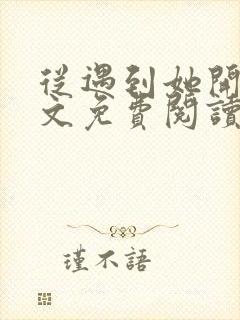 從遇到她開
文免費閱讀
瑾不語